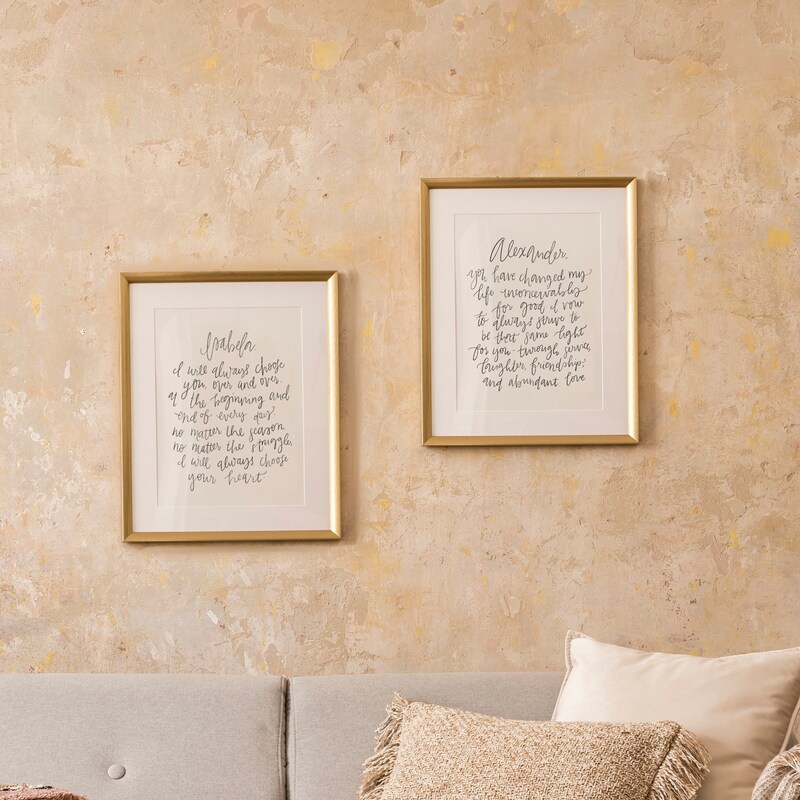 Isabela
I will always choose
you, over and over.
At the beginning and
end of every day
no matter the season
no matter the struggle,
I will always choose
your heart
Alexander,
you have changed my
life inconceivably
for good I vow
to always strive to
be that same light
for you- through service,
laughter, friendship,
and abundant love